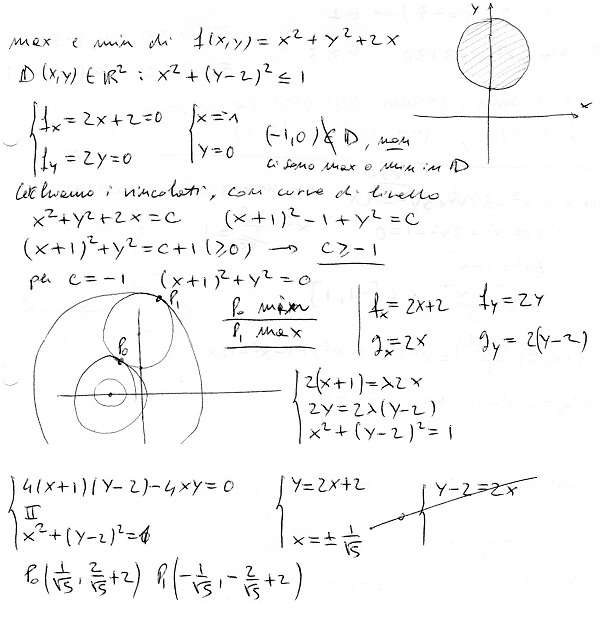 max e min di f(x,y) = x² + y² + 2x
D (x,y) ∈ ℝ² : x² + (y-2)² ≤ 1
y
x
{ fx = 2x+2 = 0 { x = -1
fy = 2y = 0 y = 0
(-1,0) ∉ D, non
ci sono max o min in D
cerchiamo i vincolati, con curve di livello
x² + y² + 2x = c (x+1)² - 1 + y² = c
(x+1)² + y² = c+1 (≥0) → c ≥ -1
per c = -1 (x+1)² + y² = 0
P₁
P₀
P₀ min
P₁ max
fx = 2x+2 fy = 2y
gx = 2x gy = 2(y-2)
{ 2(x+1) = λ2x
2y = 2λ(y-2)
x² + (y-2)² = 1
{ 4(x+1)(y-2) - 4xy = 0 { y = 2x+2 { y-2 = 2x
II
x² + (y-2)² = 1 x = ± 1/√5
P₀(1/√5, 2/√5 + 2) P₁(-1/√5, -2/√5 + 2)